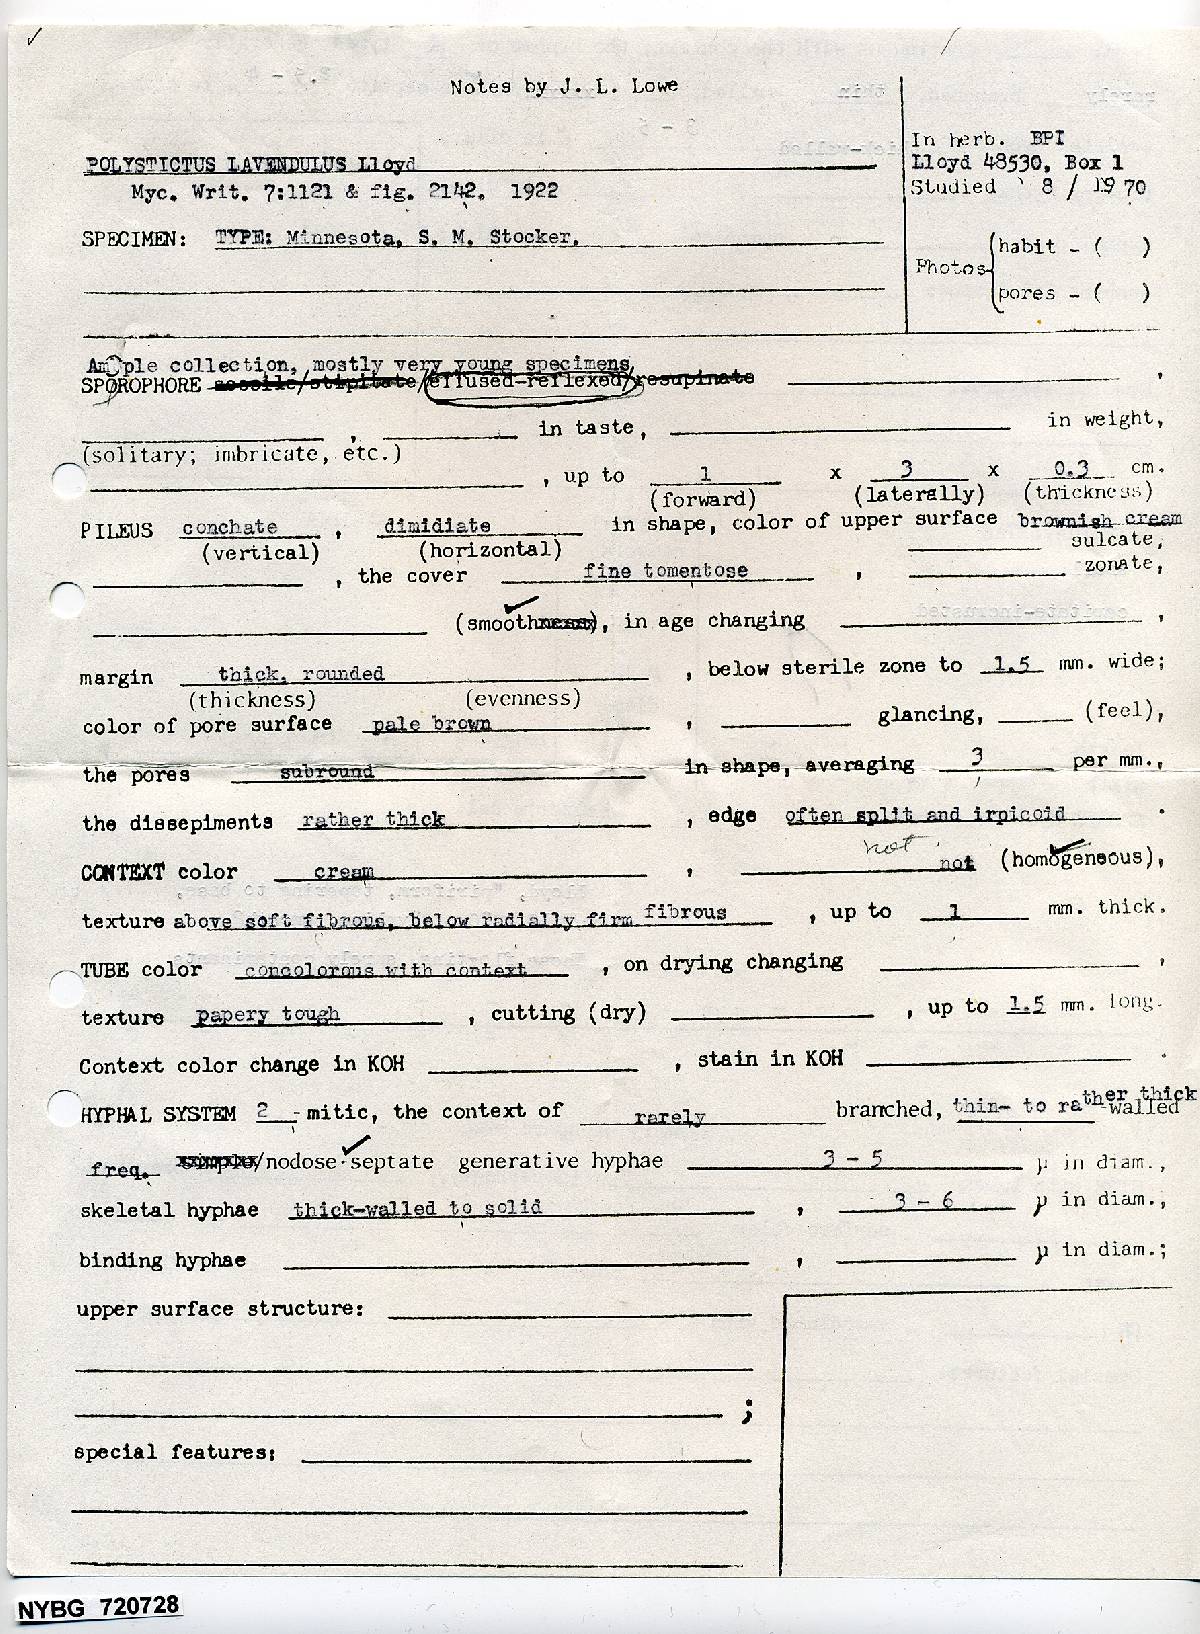 Notes by J. L. Lowe
In herb. BPI
POLYSTICTUS LAVENDULUS Lloyd
Lloyd 48530, Box 1
Myc. Writ. 7:1121 & fig. 2142. 1922
Studied 8 / 1970
SPECIMEN: TYPE: Minnesota, S. M. Stocker.
Photos
habit - ( )
pores - ( )
Ample collection, mostly very young specimens
SPOROPHORE sessile/stipitate/effused-reflexed/resupinate ,
, in taste, in weight,
(solitary; imbricate, etc.)
, up to 1 x 3 x 0.3 cm.
(forward) (laterally) (thickness)
PILEUS conchate , dimidiate in shape, color of upper surface brownish cream
(vertical) (horizontal) sulcate,
, the cover fine tomentose , zonate,
(smoothness), in age changing ,
margin thick, rounded , below sterile zone to 1.5 mm. wide;
(thickness) (evenness)
color of pore surface pale brown , glancing, (feel),
the pores subround in shape, averaging 3 per mm.,
the dissepiments rather thick , edge often split and irpicoid .
not
CONTEXT color cream , not (homogeneous),
texture above soft fibrous, below radially firm fibrous , up to 1 mm. thick.
TUBE color concolorous with context , on drying changing ,
texture papery tough , cutting (dry) , up to 1.5 mm. long.
Context color change in KOH , stain in KOH .
HYPHAL SYSTEM 2 -mitic, the context of rarely branched, thin- to rather thick-walled
freq. simple/nodose-septate generative hyphae 3 - 5 µ in diam.,
skeletal hyphae thick-walled to solid , 3 - 6 µ in diam.,
binding hyphae , µ in diam.;
upper surface structure:
;
special features:
NYBG 720728